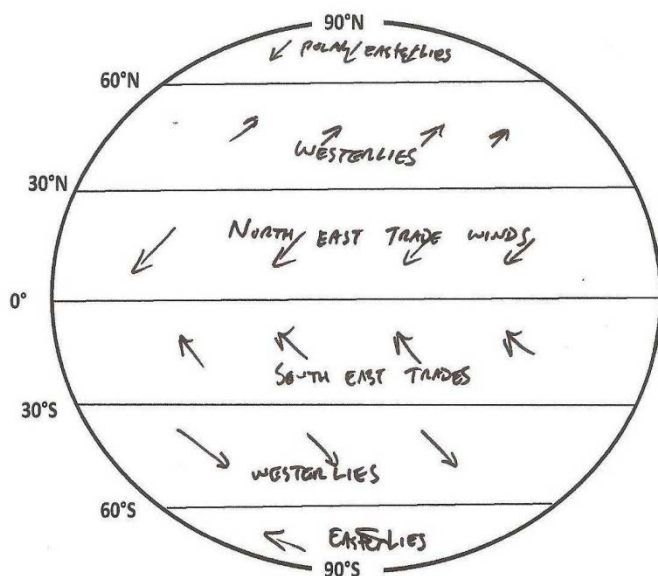 90°N
POLAR EASTERLIES
60°N
WESTERLIES
30°N
NORTH EAST TRADE WINDS
0°
SOUTH EAST TRADES
30°S
WESTERLIES
60°S
EASTERLIES
90°S